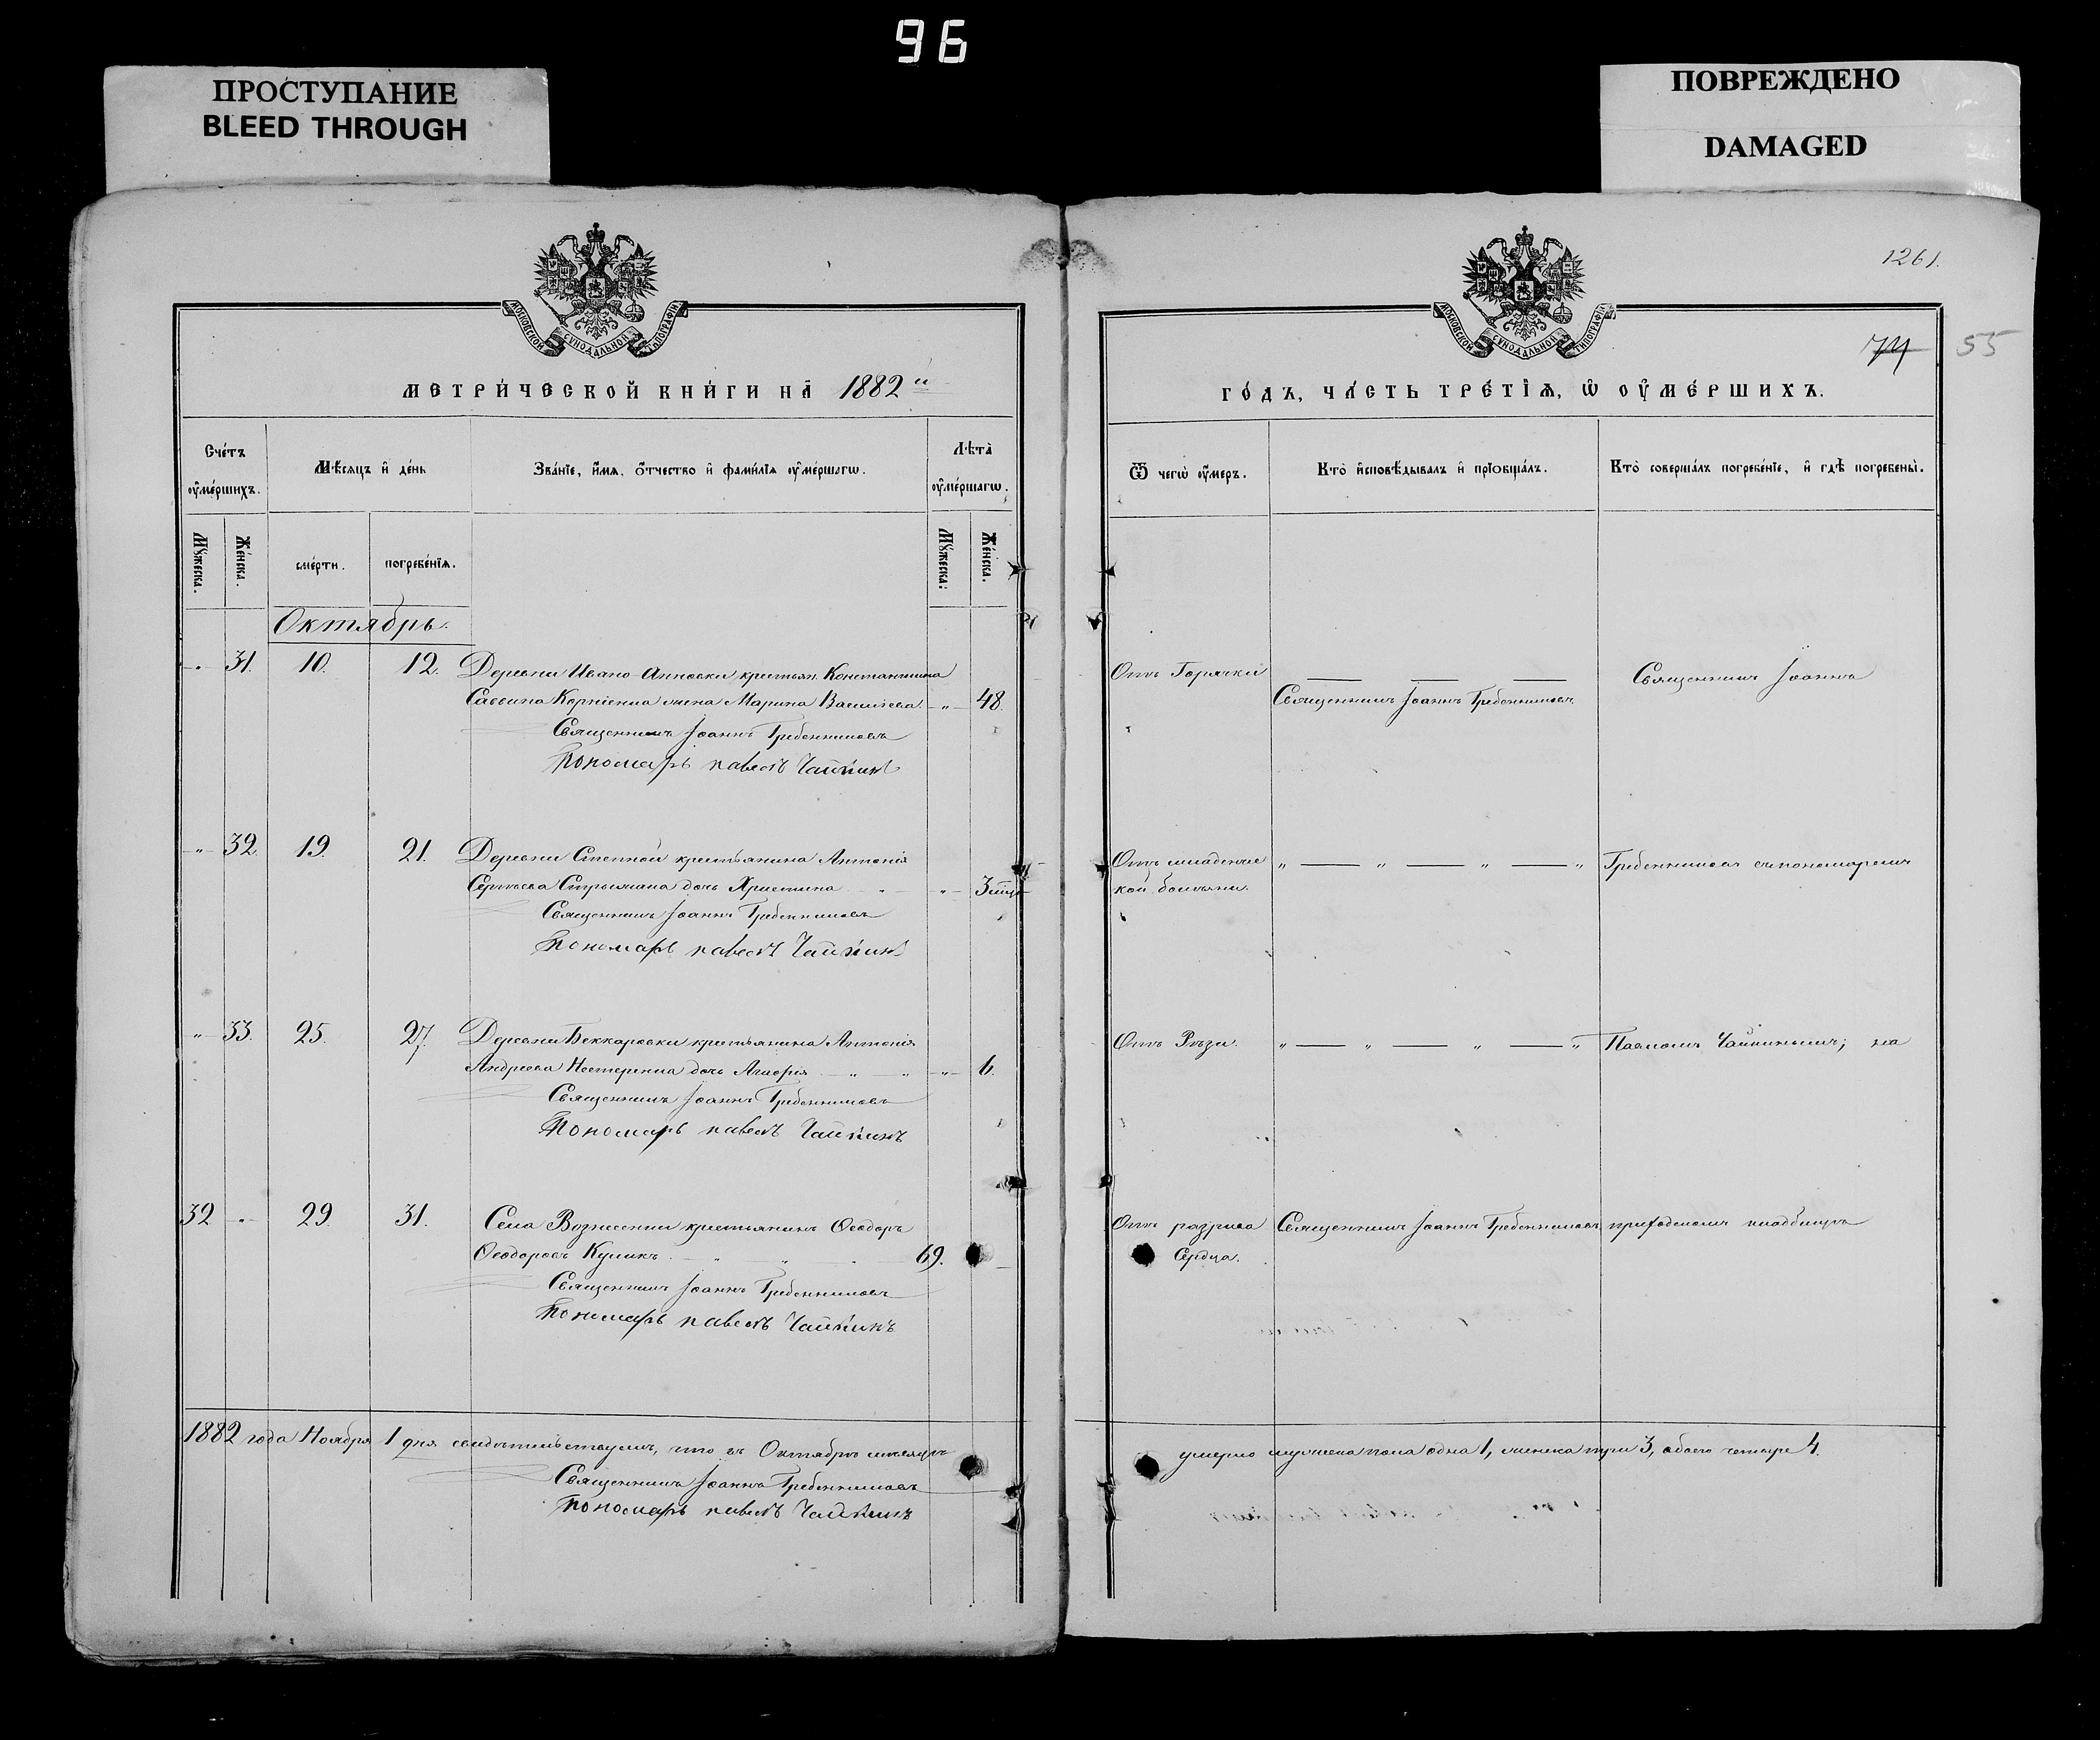 96
ПРОСТУПАНИЕ
BLEED THROUGH
ПОВРЕЖДЕНО
DAMAGED
1261.
МОСКОВСКОЙ СѴНОДАЛЬНОЙ ТИПОГРАФІИ
МОСКОВСКОЙ СѴНОДАЛЬНОЙ ТИПОГРАФІИ
74 55
МЕТРИ́ЧЕСКОЙ КНИ́ГИ НА̀ 1882 й
ГО́ДЪ, ЧА́СТЬ ТРЕ́ТІѦ, Ѡ҆ ОУ҆МЕ́РШИХЪ.
Сче́тъ оу҆ме́ршихъ.
Мѣ́сяцъ и҆ де́нь
Зва́ніе, и҆́мя, о҆́тчество и҆ фами́лія оу҆ме́ршагѡ.
Лѣ́та оу҆ме́ршагѡ.
Ѿ чегѡ̀ оу҆́меръ.
Кто̀ и҆сповѣ́дывалъ и҆ прїобща́лъ.
Кто̀ соверша́лъ погребе́ніе, и҆ гдѣ̀ погребены̀.
Мꙋ́жеска.
Же́нска.
сме́рти.
погребе́нія.
Мꙋ́жеска.
Же́нска.
Октябрь.
" 31. 10. 12. Деревни Ивано-Анновки крестьян. Константина
Саввина Корніенка жена Марина Васильева " 48
Священникъ Іоаннъ Гребенниковъ
Пономарь Павелъ Чайкинъ
Отъ Горячки
Священникъ Іоаннъ Гребенниковъ
Священникъ Іоаннъ
" 32. 19. 21. Деревни Степной крестьянина Антонія
Сергѣева дочь Христина " " 3 мѣц
Священникъ Іоаннъ Гребенниковъ
Пономарь Павелъ Чайкинъ
Отъ младенче
кой болѣзни.
" " " "
Гребенниковъ съ пономаремъ
" 33. 25. 27. Деревни Беккаровки крестьянина Антонія
Андреева Нестеренка дочь Агафія " " " 6.
Священникъ Іоаннъ Гребенниковъ
Пономарь Павелъ Чайкинъ
Отъ Рѣзи.
" " " "
Павломъ Чайкинымъ; на
32 " 29. 31. Села Вознесенки крестьянинъ Ѳеодоръ
Ѳеодоровъ Куликъ " " " 69.
Священникъ Іоаннъ Гребенниковъ
Пономарь Павелъ Чайкинъ
Отъ разрыва
Сердца.
Священникъ Іоаннъ Гребенниковъ
приходскомъ кладбищѣ
1882 года Ноября 1 дня свидѣтельствуемъ, что въ Октябрѣ мѣсяцѣ
умерло мужеска пола одна 1, женска три 3, обоего четыре 4.
Священникъ Іоаннъ Гребенниковъ
Пономарь Павелъ Чайкинъ